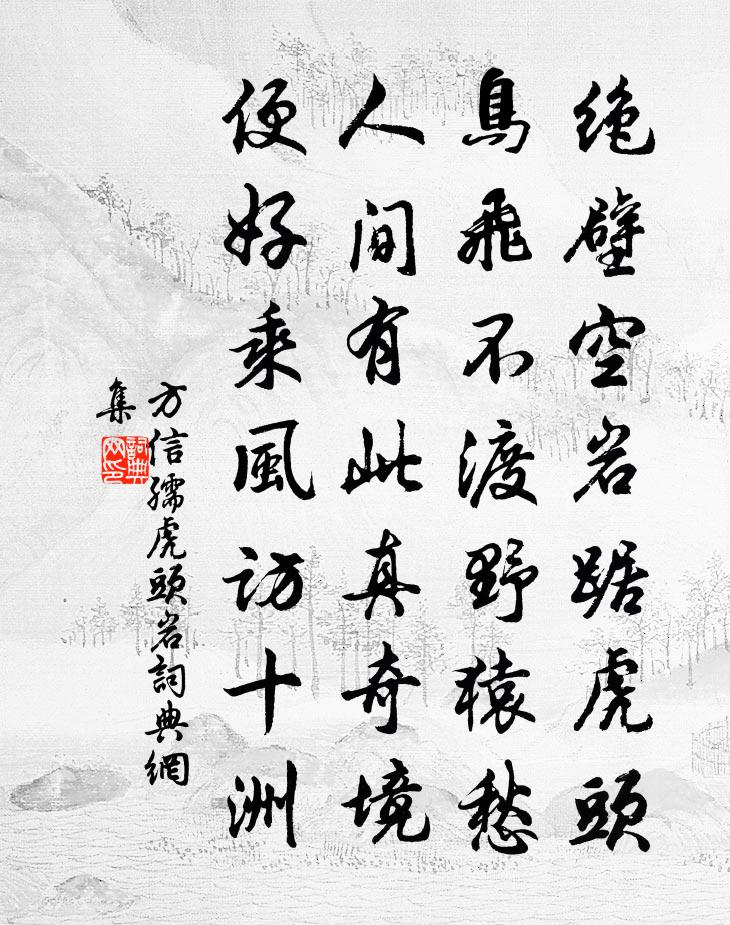 绝壁空岩踞虎頭
鳥飛不渡野猿愁
人間有此真奇境
便好乘風訪十洲
方信孺虎頭岩詞典網
集
詞典
网印